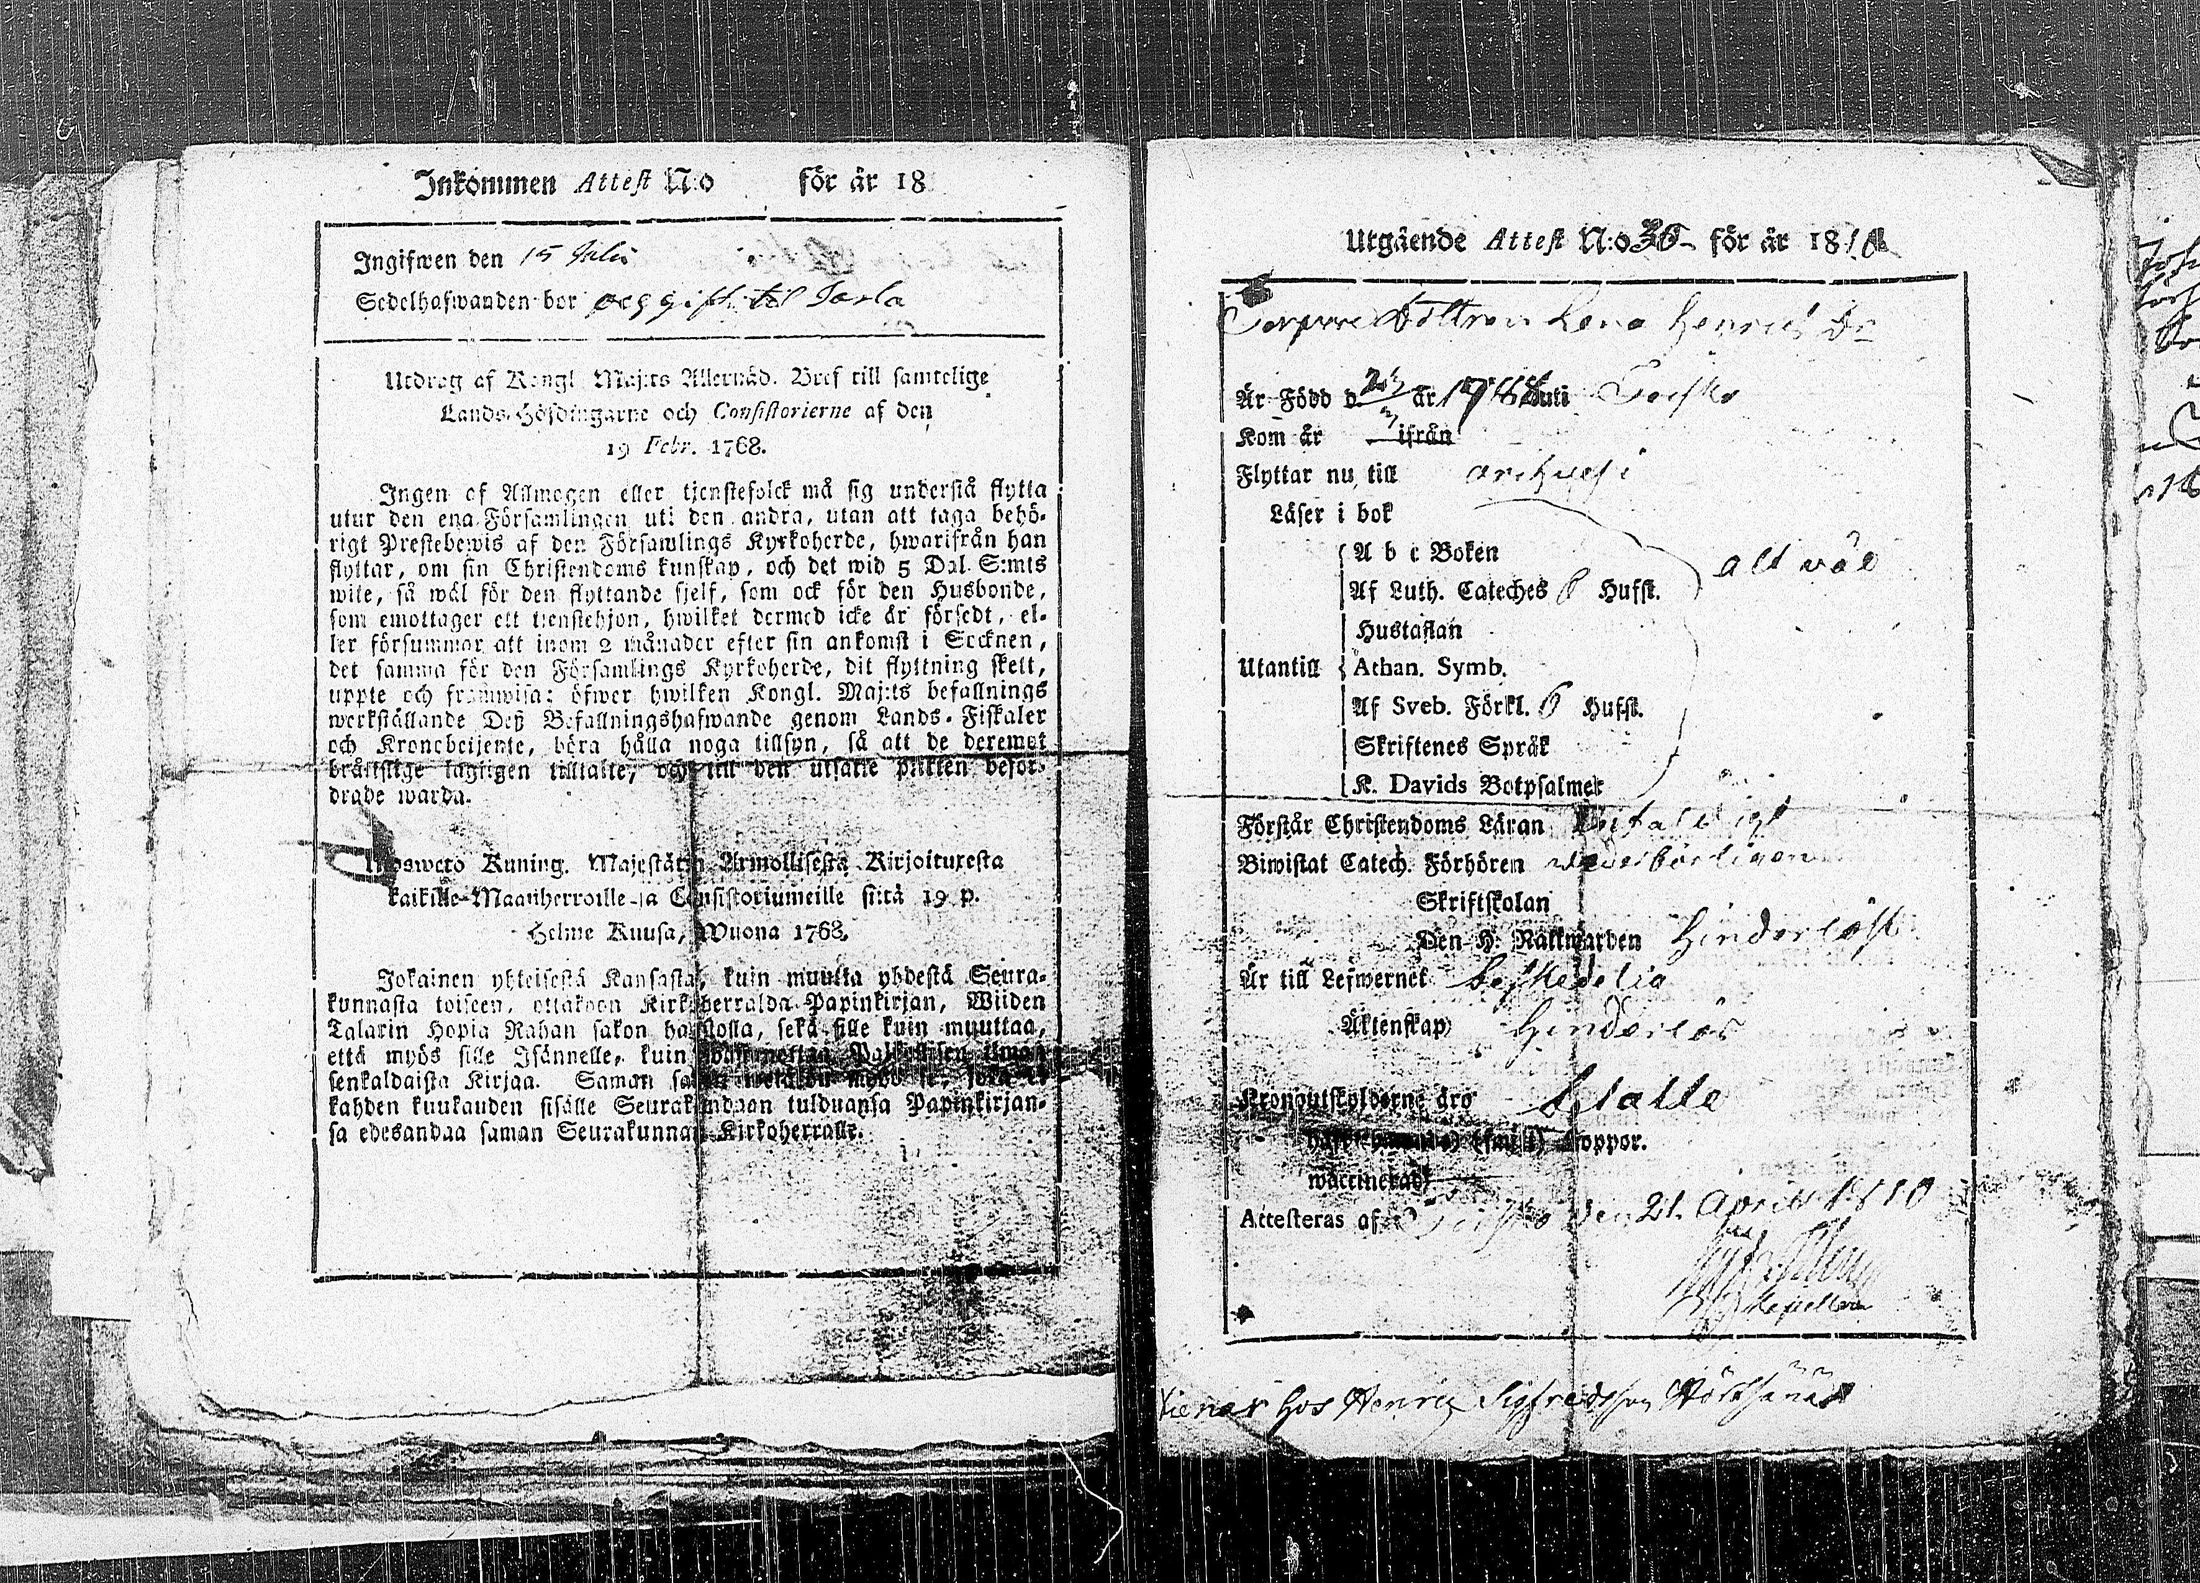 Inkommen Attest N:o för år 18
Ingifwen den 15 Julii
Sedelhafwanden bor och gift til Jarla
Utdrag af Kongl. Maj:ts Allernåd. Bref till samtelige
Lands-Höfdingarne och Consistorierne af den
19 Febr. 1768.
Ingen af Allmogen eller tjenstefolck må sig understå flytta
utur den ena Församlingen uti den andra, utan att taga behö-
rigt Prestebewis af den Församlings Kyrkoherde, hwarifrån han
flyttar, om sin Christendoms kunskap, och det wid 5 Dal. S:mts
wite, så wäl för den flyttande sjelf, som ock för den Husbonde,
som emottager ett tienstehjon, hwilket dermed icke är försedt, el-
ler försummar att inom 2 månader efter sin ankomst i Socknen,
det samma för den Församlings Kyrkoherde, dit flyttning skett,
uppte och framwisa: öfwer hwilken Kongl. Maj:ts befallnings
werkställande Deß Befallningshafwande genom Lands-Fiskaler
och Kronobetjente, böra hålla noga tillsyn, så att de deremot
bråttslige lagligen tilltalte, och till den utsatte plikten befor-
drade warda.
Ulosweto Kuning. Majestätin Armollisesta Kirjoituxesta
kaikille Maanherroille ja Consistoriumeille siitä 19 p.
Helme Kuusa, Wuona 1768.
Jokainen yhteisestä Kansasta, kuin muutta yhdestä Seura-
kunnasta toiseen, ottakoon Kirkkoherralda Papinkirjan, Wiiden
Talarin Hopia Rahan sakon haastolla, sekä sille kuin muuttaa,
että myös sille Isännelle, kuin Palkollisen ilman
senkaldaista Kirjaa. Saman
kahden kuukauden sisälle Seurakundaan tulduansa Papinkirjan-
sa edesandaa saman Seurakunnan Kirkoherralle.
Utgående Attest N:o 36 för år 1810
Dottren Lena Henrics Dr
Är Född d. år 1788 uti
Kom år ifrån
Flyttar nu till
Läser i bok
A b c Boken
alt väl
Af Luth. Cateches 6 Hufst.
Hustaflan
Utantill Athan. Symb.
Af Sveb. Förkl. 6 Hufst.
Skriftenes Språk
K. Davids Botpsalmer
Förstår Christendoms Läran
Biwistat Catech. Förhören wederbörligen
Skriftskolan
Den H. Nattwarden Hinderlöst
Är till Lefwernet beskedelig
Äktenskap Hinderlös
Kronoutskylderne äro betalte
koppor.
waccinerad
Attesteras af den 21. April 1810
Kapellan
tienar hos Henric Sigfredsson